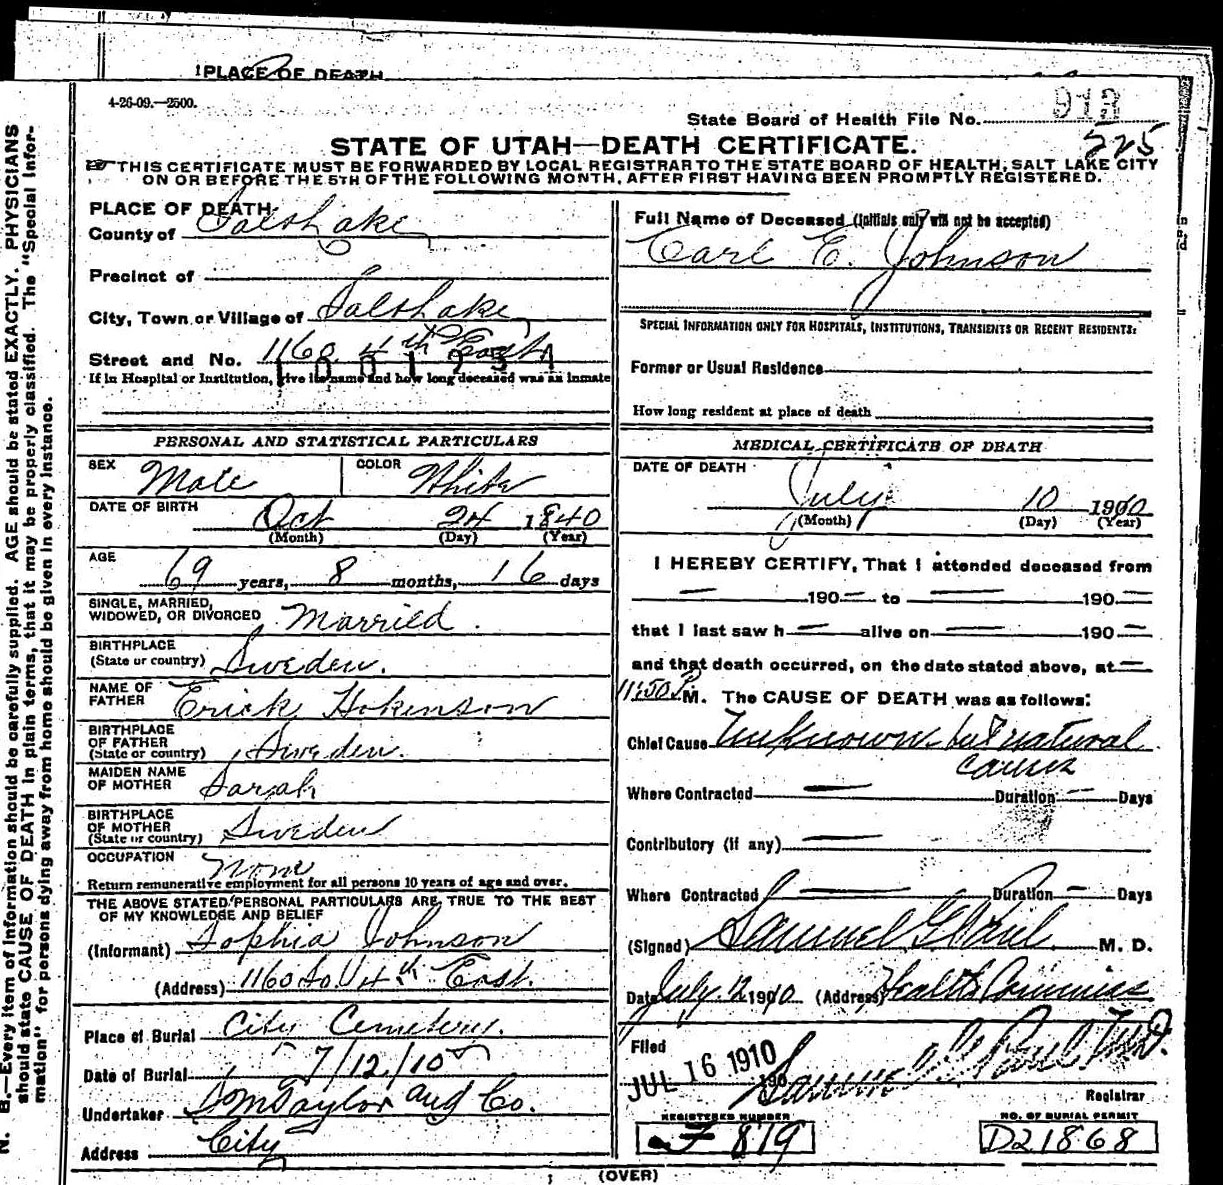 1 PLACE OF DEATH
4-26-09.—2500.
State Board of Health File No. 913
525
STATE OF UTAH—DEATH CERTIFICATE.
THIS CERTIFICATE MUST BE FORWARDED BY LOCAL REGISTRAR TO THE STATE BOARD OF HEALTH, SALT LAKE CITY
ON OR BEFORE THE 5TH OF THE FOLLOWING MONTH, AFTER FIRST HAVING BEEN PROMPTLY REGISTERED.
PLACE OF DEATH:
County of Salt Lake
Precinct of
City, Town or Village of Salt Lake
Street and No. 1160 4th East
1001234
If in Hospital or Institution, give its name and how long deceased was an inmate
PERSONAL AND STATISTICAL PARTICULARS
SEX Male COLOR White
DATE OF BIRTH Oct 24 1840
(Month) (Day) (Year)
AGE 69 years, 8 months, 16 days
SINGLE, MARRIED,
WIDOWED, OR DIVORCED Married.
BIRTHPLACE
(State or country) Sweden.
NAME OF
FATHER Erick Hokenson
BIRTHPLACE
OF FATHER
(State or country) Sweden.
MAIDEN NAME
OF MOTHER Sarah
BIRTHPLACE
OF MOTHER
(State or country) Sweden
OCCUPATION None
Return remunerative employment for all persons 10 years of age and over.
THE ABOVE STATED PERSONAL PARTICULARS ARE TRUE TO THE BEST
OF MY KNOWLEDGE AND BELIEF
(Informant) Sophia Johnson
(Address) 1160 So 4th East.
Place of Burial City Cemetery.
Date of Burial 7/12/10
Undertaker S M Taylor and Co.
Address City
Full Name of Deceased (Initials only will not be accepted)
Carl E. Johnson
SPECIAL INFORMATION ONLY FOR HOSPITALS, INSTITUTIONS, TRANSIENTS OR RECENT RESIDENTS:
Former or Usual Residence
How long resident at place of death
MEDICAL CERTIFICATE OF DEATH
DATE OF DEATH
July 10 1910
(Month) (Day) (Year)
I HEREBY CERTIFY, That I attended deceased from
— 190— to — 190—
that I last saw h — alive on — 190—
and that death occurred, on the date stated above, at —
11:50 P. M. The CAUSE OF DEATH was as follows:
Chief Cause Unknown but natural
causes
Where Contracted — Duration — Days
Contributory (if any) —
Where Contracted — Duration — Days
(Signed) Samuel G. Paul M. D.
Date July 12 1910 (Address) Health Commiss
Filed
JUL 16 1910 190 Samuel G. Paul M.D.
Registrar
REGISTERED NUMBER
F 819
NO. OF BURIAL PERMIT
D21868
(OVER)
N. B.—Every item of information should be carefully supplied. AGE should be stated EXACTLY. PHYSICIANS
should state CAUSE OF DEATH in plain terms, that it may be properly classified. The "Special Infor-
mation" for persons dying away from home should be given in every instance.